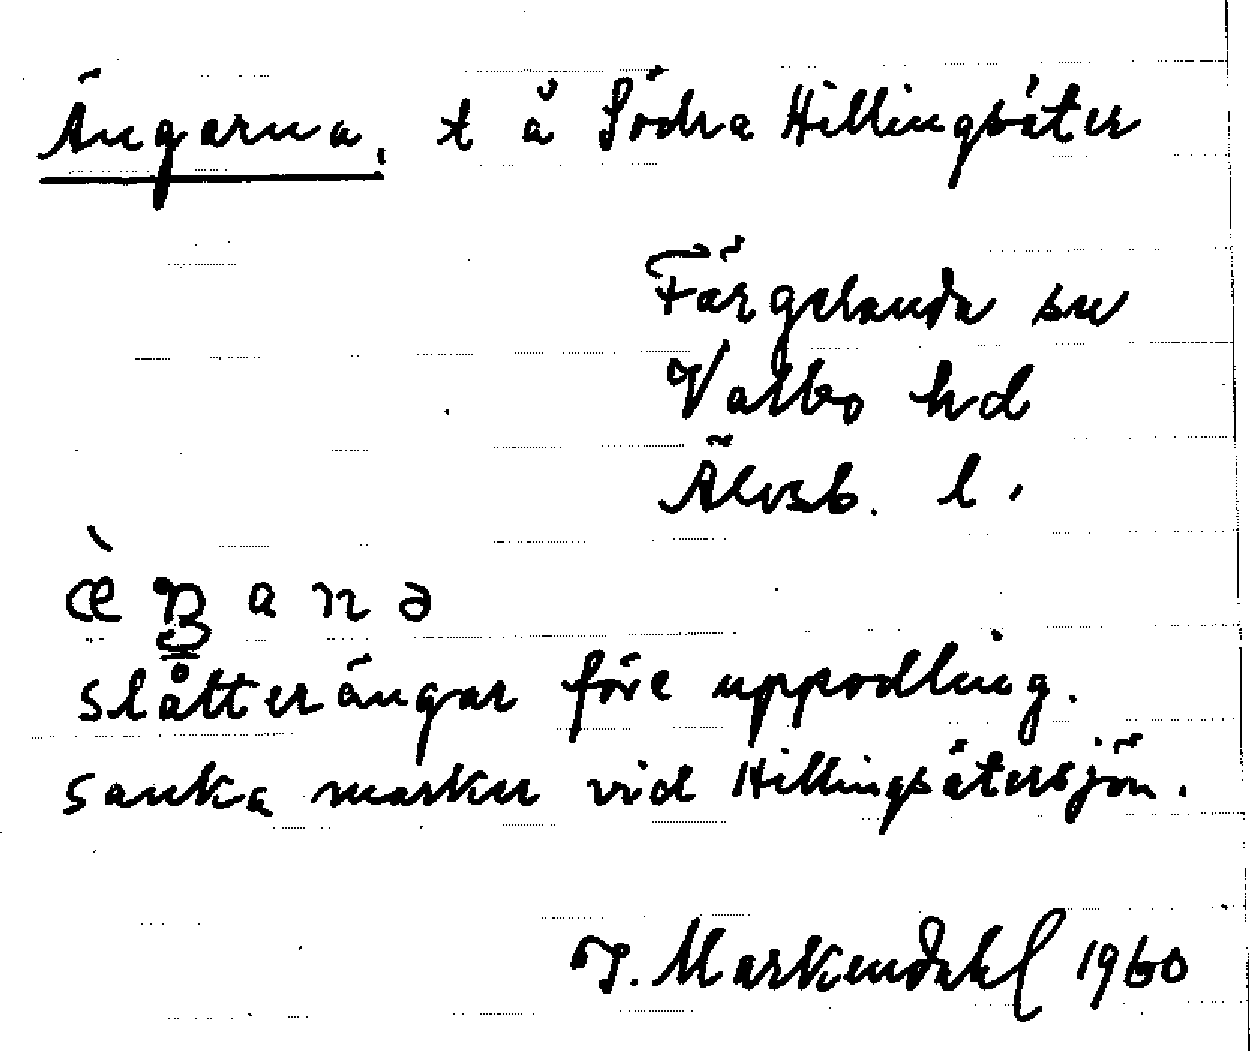 Ängarna, t å Södra Hillingsäter
Färgelanda sn
Valbo hd
Älvsb. l.
slåtterängar före uppodling.
sanka marker vid Hillingsätersjön.
I. Markendahl 1960